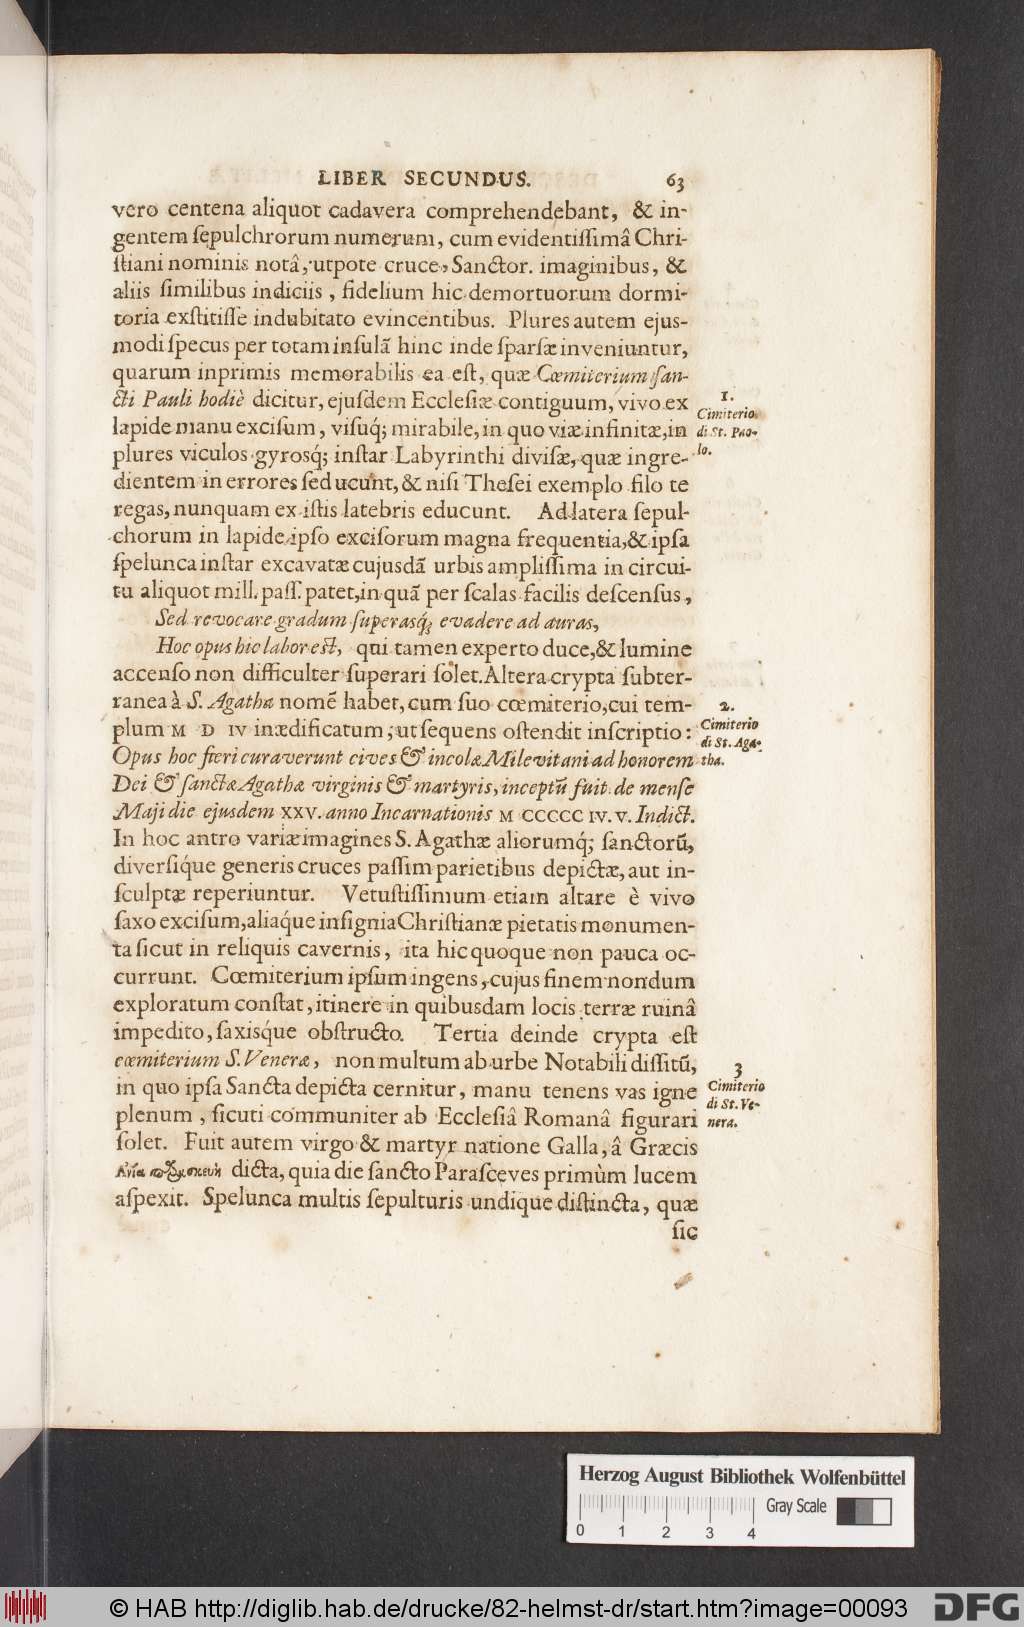 LIBER SECUNDUS. 63
vero centena aliquot cadavera comprehendebant, & in-
gentem ſepulchrorum numerum, cum evidentiſſimâ Chri-
ſtiani nominis notâ, utpote cruce, Sanctor. imaginibus, &
aliis ſimilibus indiciis, fidelium hic demortuorum dormi-
toria exſtitiſſe indubitato evincentibus. Plures autem ejus-
modi ſpecus per totam inſulã hinc inde ſparſæ inveniuntur,
quarum inprimis memorabilis ea eſt, quæ Cœmiterium ſan-
cti Pauli hodiè dicitur, ejuſdem Eccleſiæ contiguum, vivo ex
lapide manu exciſum, viſuq́; mirabile, in quo viæ infinitæ, in
plures viculos gyrosq́; inſtar Labyrinthi diviſæ, quæ ingre-
dientem in errores ſeducunt, & niſi Theſei exemplo filo te
regas, nunquam ex iſtis latebris educunt. Ad latera ſepul-
chorum in lapide ipſo exciſorum magna frequentia, & ipſa
ſpelunca inſtar excavatæ cujusdã urbis ampliſſima in circui-
tu aliquot mill. paſſ. patet, in quã per ſcalas facilis deſcenſus,
Sed revocare gradum ſuperasq́; evadere ad auras,
Hoc opus hic labor eſt, qui tamen experto duce, & lumine
accenſo non difficulter ſuperari ſolet. Altera crypta ſubter-
ranea à S. Agatha nomẽ habet, cum ſuo cœmiterio, cui tem-
plum M D IV inædificatum, ut ſequens oſtendit inſcriptio:
Opus hoc fieri curaverunt cives & incolæ Milevitani ad honorem
Dei & ſanctæ Agathæ virginis & martyris, inceptũ fuit de menſe
Maji die ejusdem XXV. anno Incarnationis M CCCCC IV. V. Indict.
In hoc antro variæ imagines S. Agathæ aliorumq́; ſanctorũ,
diverſiq́ue generis cruces paſſim parietibus depictæ, aut in-
ſculptæ reperiuntur. Vetuſtiſſimum etiam altare è vivo
ſaxo exciſum, aliaq́ue inſignia Chriſtianæ pietatis monumen-
ta ſicut in reliquis cavernis, ita hic quoque non pauca oc-
currunt. Cœmiterium ipſum ingens, cujus finem nondum
exploratum conſtat, itinere in quibusdam locis terræ ruinâ
impedito, ſaxisq́ue obſtructo. Tertia deinde crypta eſt
cœmiterium S. Veneræ, non multum ab urbe Notabili diſſitũ,
in quo ipſa Sancta depicta cernitur, manu tenens vas igne
plenum, ſicuti communiter ab Eccleſiâ Romanâ figurari
ſolet. Fuit autem virgo & martyr natione Galla, â Græcis
dicta, quia die ſancto Paraſceves primùm lucem
aſpexit. Spelunca multis ſepulturis undique diſtincta, quæ
ſic
1.
Cimiterio
di St. Pao-
lo.
2.
Cimiterio
di St. Aga-
tha.
3
Cimiterio
di St. Ve-
nera.
Herzog August Bibliothek Wolfenbüttel
Gray Scale
0 1 2 3 4
© HAB http://diglib.hab.de/drucke/82-helmst-dr/start.htm?image=00093
DFG